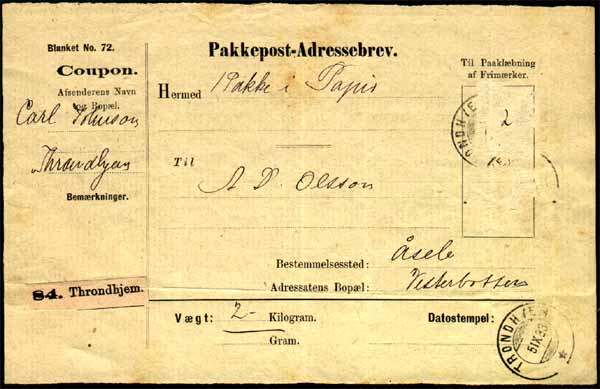 Blanket No. 72.
Coupon.
Afsenderens Navn
og Bopæl.
Carl Johnson
Throndhjem
Bemærkninger.
84. Throndhjem.
Pakkepost-Adressebrev.
Hermed Pakke i Papir
Til
A D. Olsson
Bestemmelsessted: Åsele
Adressatens Bopæl: Vesterbotten
Vægt: 2 - Kilogram.
Gram.
Datostempel:
Til Paaklæbning
af Frimærker.
2
TRONDHJEM